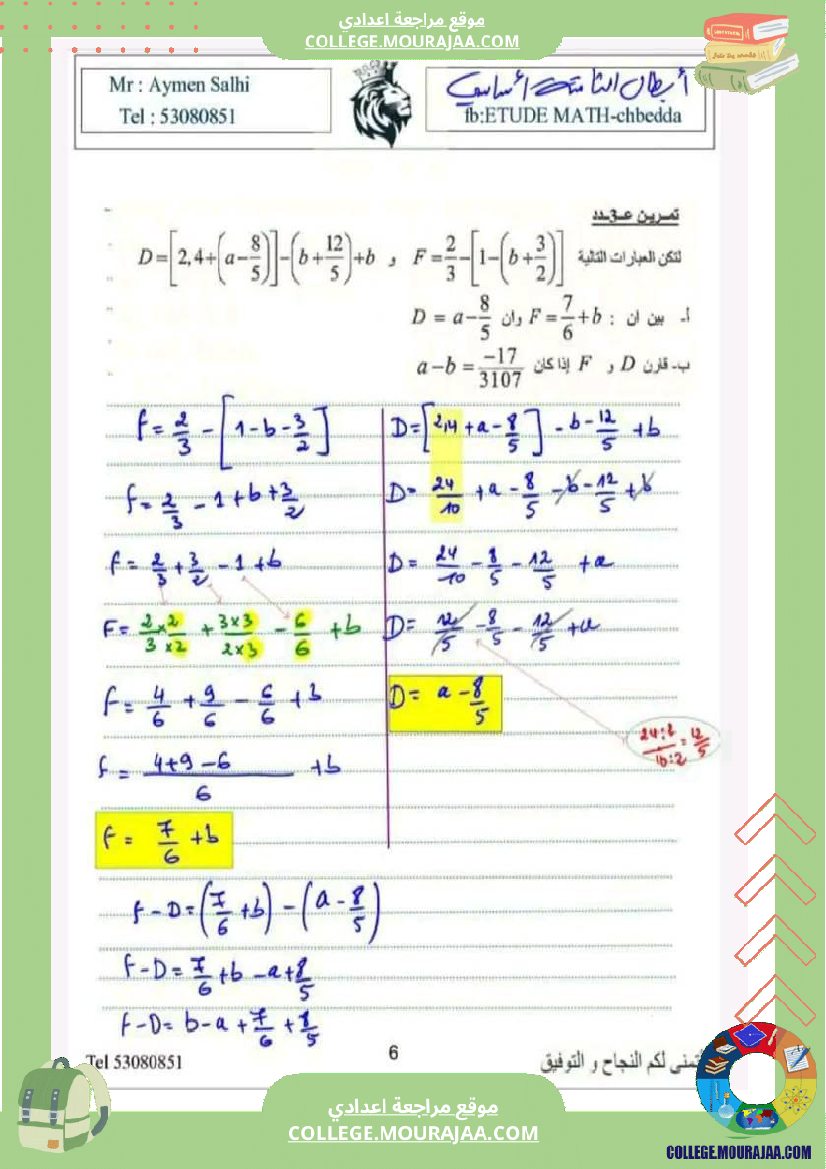 موقع مراجعة اعدادي
COLLEGE.MOURAJAA.COM
Mr : Aymen Salhi
Tel : 53080851
أبطال الثامنة أساسي
fb:ETUDE MATH-chbedda
تمرين عـدد
لتكن العبارات التالية F=2/3-[1-(b+3/2)] و D=[2,4+(a-8/5)]-(b+12/5)+b
أ- بين ان : F=7/6+b وان D = a-8/5
ب- قارن D و F إذا كان a-b=-17/3107
f=2/3-[1-b-3/2]
f=2/3-1+b+3/2
f=2/3+3/2-1+b
F=2×2/3×2+3×3/2×3-6/6+b
f=4/6+9/6-6/6+b
f=4+9-6/6+b
f=7/6+b
D=[2,4+a-8/5]-b-12/5+b
D=24/10+a-8/5-b-12/5+b
D=24/10-8/5-12/5+a
D=12/5-8/5-12/5+a
D=a-8/5
24:2/10:2=12/5
f-D=(7/6+b)-(a-8/5)
f-D=7/6+b-a+8/5
f-D=b-a+7/6+8/5
Tel 53080851
6
أتمنى لكم النجاح و التوفيق
موقع مراجعة اعدادي
COLLEGE.MOURAJAA.COM
COLLEGE.MOURAJAA.COM